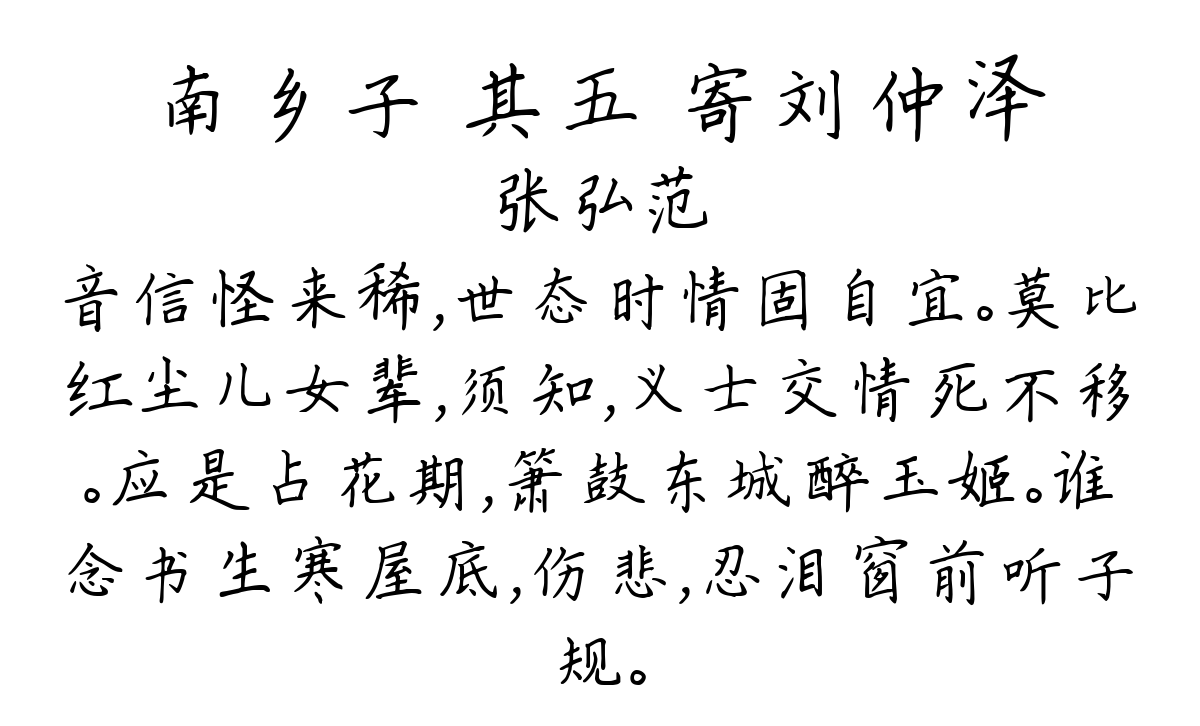 南乡子 其五 寄刘仲泽
张弘范
音信怪来稀,世态时情固自宜。莫比
红尘儿女辈,须知,义士交情死不移
。应是占花期,箫鼓东城醉玉姬。谁
念书生寒屋底,伤悲,忍泪窗前听子
规。